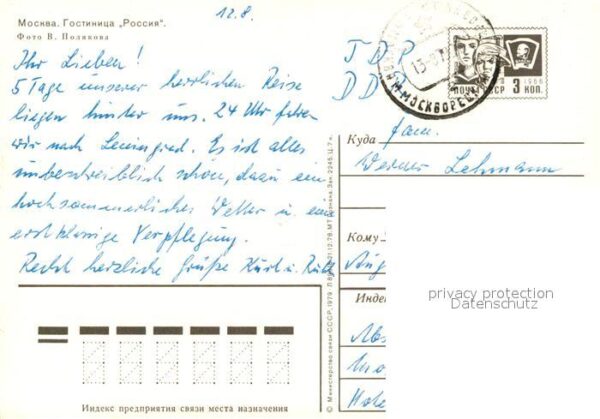 12.8.
Москва. Гостиница „Россия".
Фото В. Полякова
Ihr Lieben!
5 Tage unserer herrlichen Reise
liegen hinter uns. 24 Uhr fahren
wir nach Leningrad. Es ist alles
unbeschreiblich schön, dazu ein
hochsommerliches Wetter u. ein
erstklassige Verpflegung.
Recht herzliche Grüße Kurt u.
ПОЧТА СССР 3 КОП.
1966
МОСКВОРЕЦ
DDR
Куда
Fam.
Werner Lehmann
Кому
Инде
privacy protection
Datenschutz
© Министерство связи СССР, 1979
Индекс предприятия связи места назначения